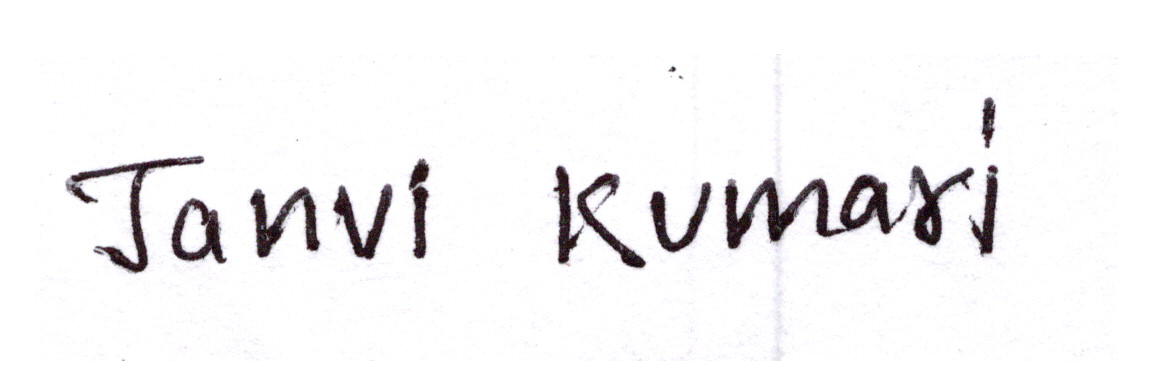 Janvi Kumari